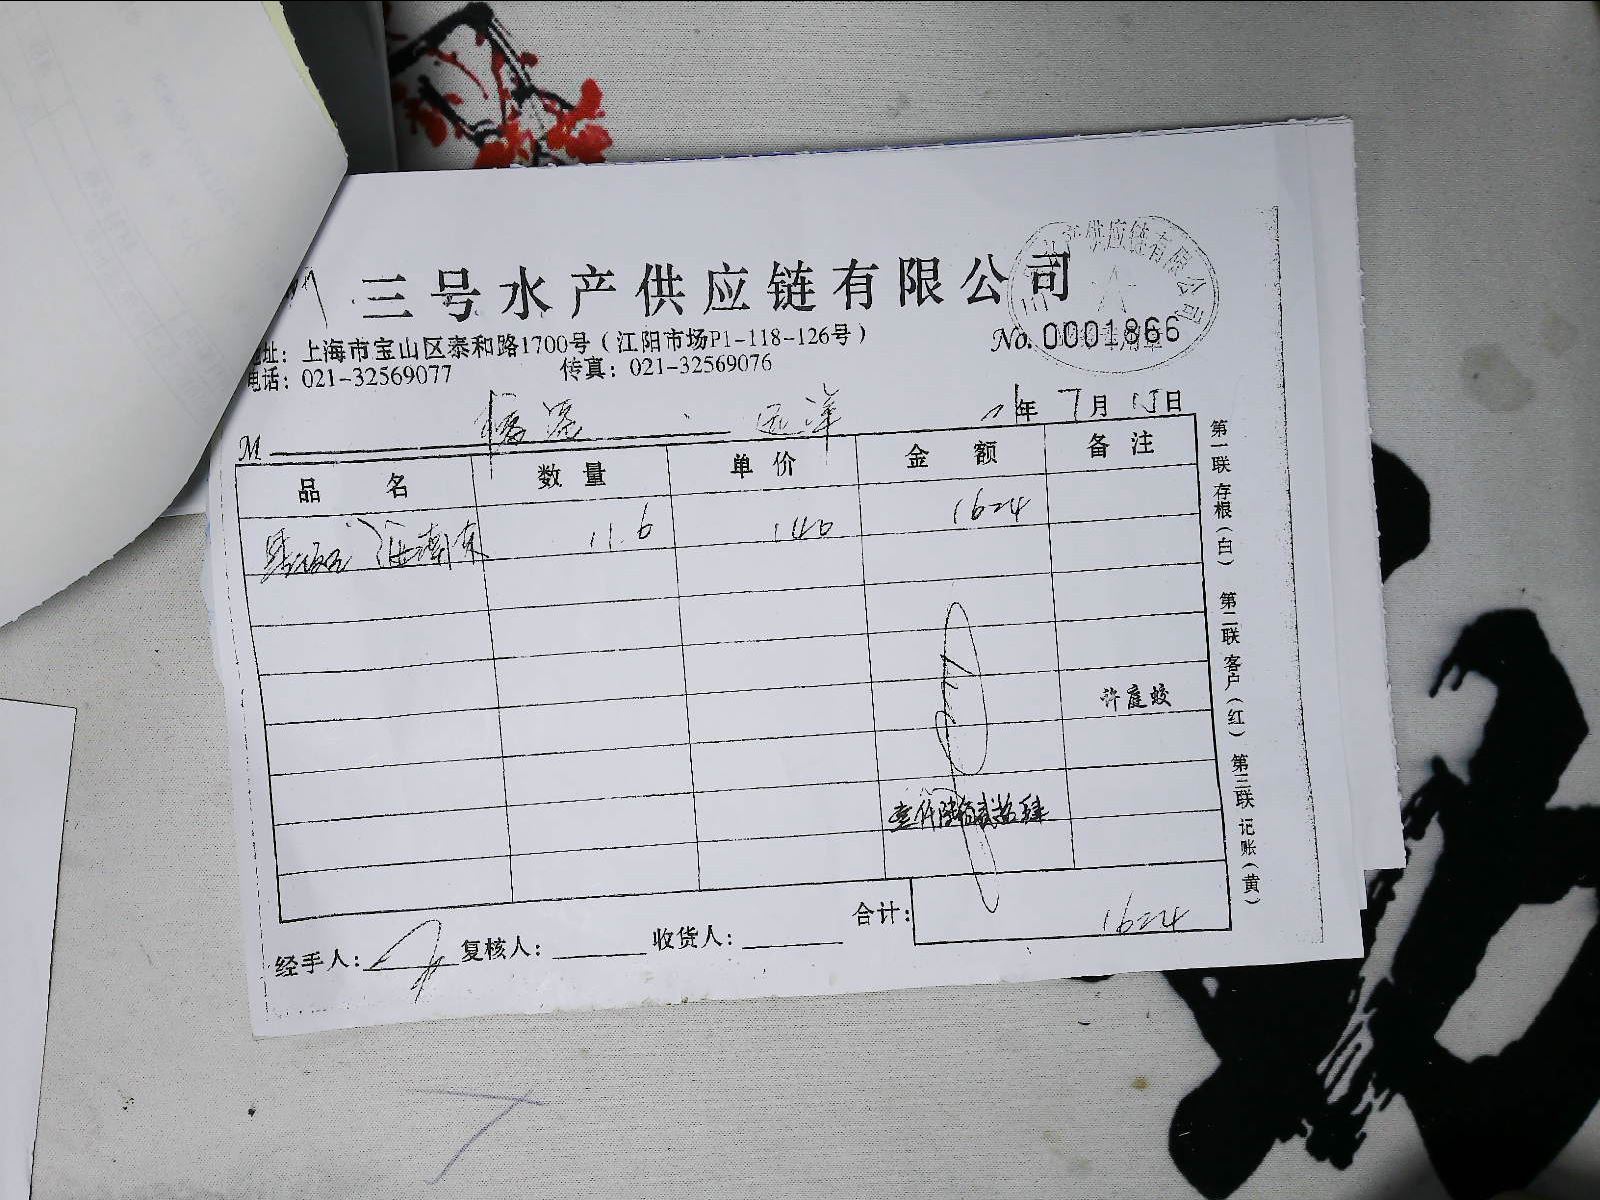 三号水产供应链有限公司
产供应链有限公司
址：上海市宝山区泰和路1700号（江阳市场P1-118-126号）
No. 0001866
电话：021-32569077 传真：021-32569076
M 远洋 21年 7月 15日
品名 数量 单价 金额 备注
海南东 11.6 140 1624
许庭蛟
壹仟陆佰贰拾肆
合计： 1624
经手人： 复核人： 收货人：
第一联 存根（白） 第二联 客户（红） 第三联 记账（黄）